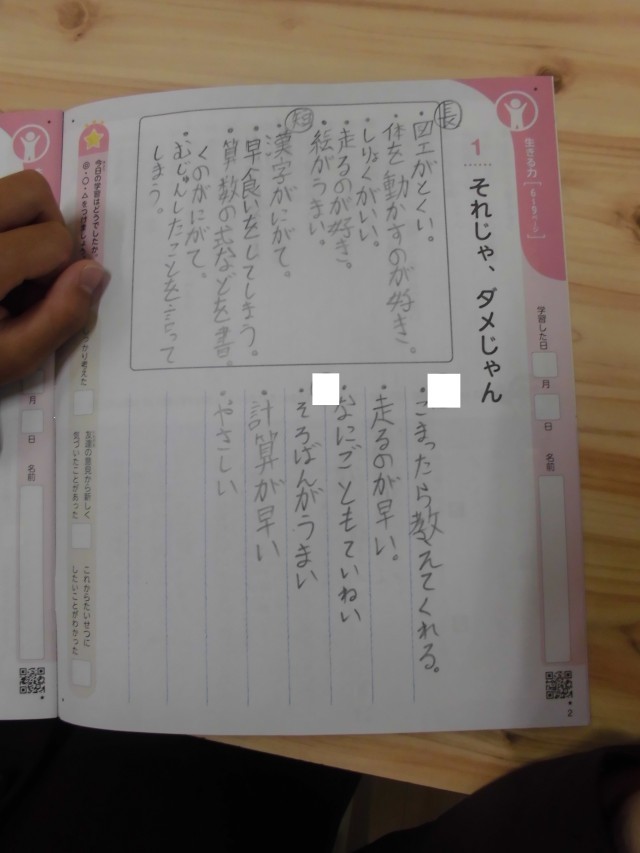 生きる力［6～9ページ］
学習した日
月
日
名前
1
それじゃ、ダメじゃん
長
・図工がとくい。
・体を動かすのが好き。
・しりょくがいい。
・走るのが好き。
・絵がうまい。
短
・漢字がにがて。
・早食いをしてしまう。
・算数の式などを書
くのがにがて。
・むじゅんしたことを言って
しまう。
・こまったら教えてくれる。
・走るのが早い。
・なにごともていねい
・そろばんがうまい
・計算が早い
・やさしい
今日の学習はどうでしたか。
◎・○・△をつけましょう
かり考えた
友達の意見から新しく
気づいたことがあった
これからたいせつに
したいことがわかった
2
月
日
名前